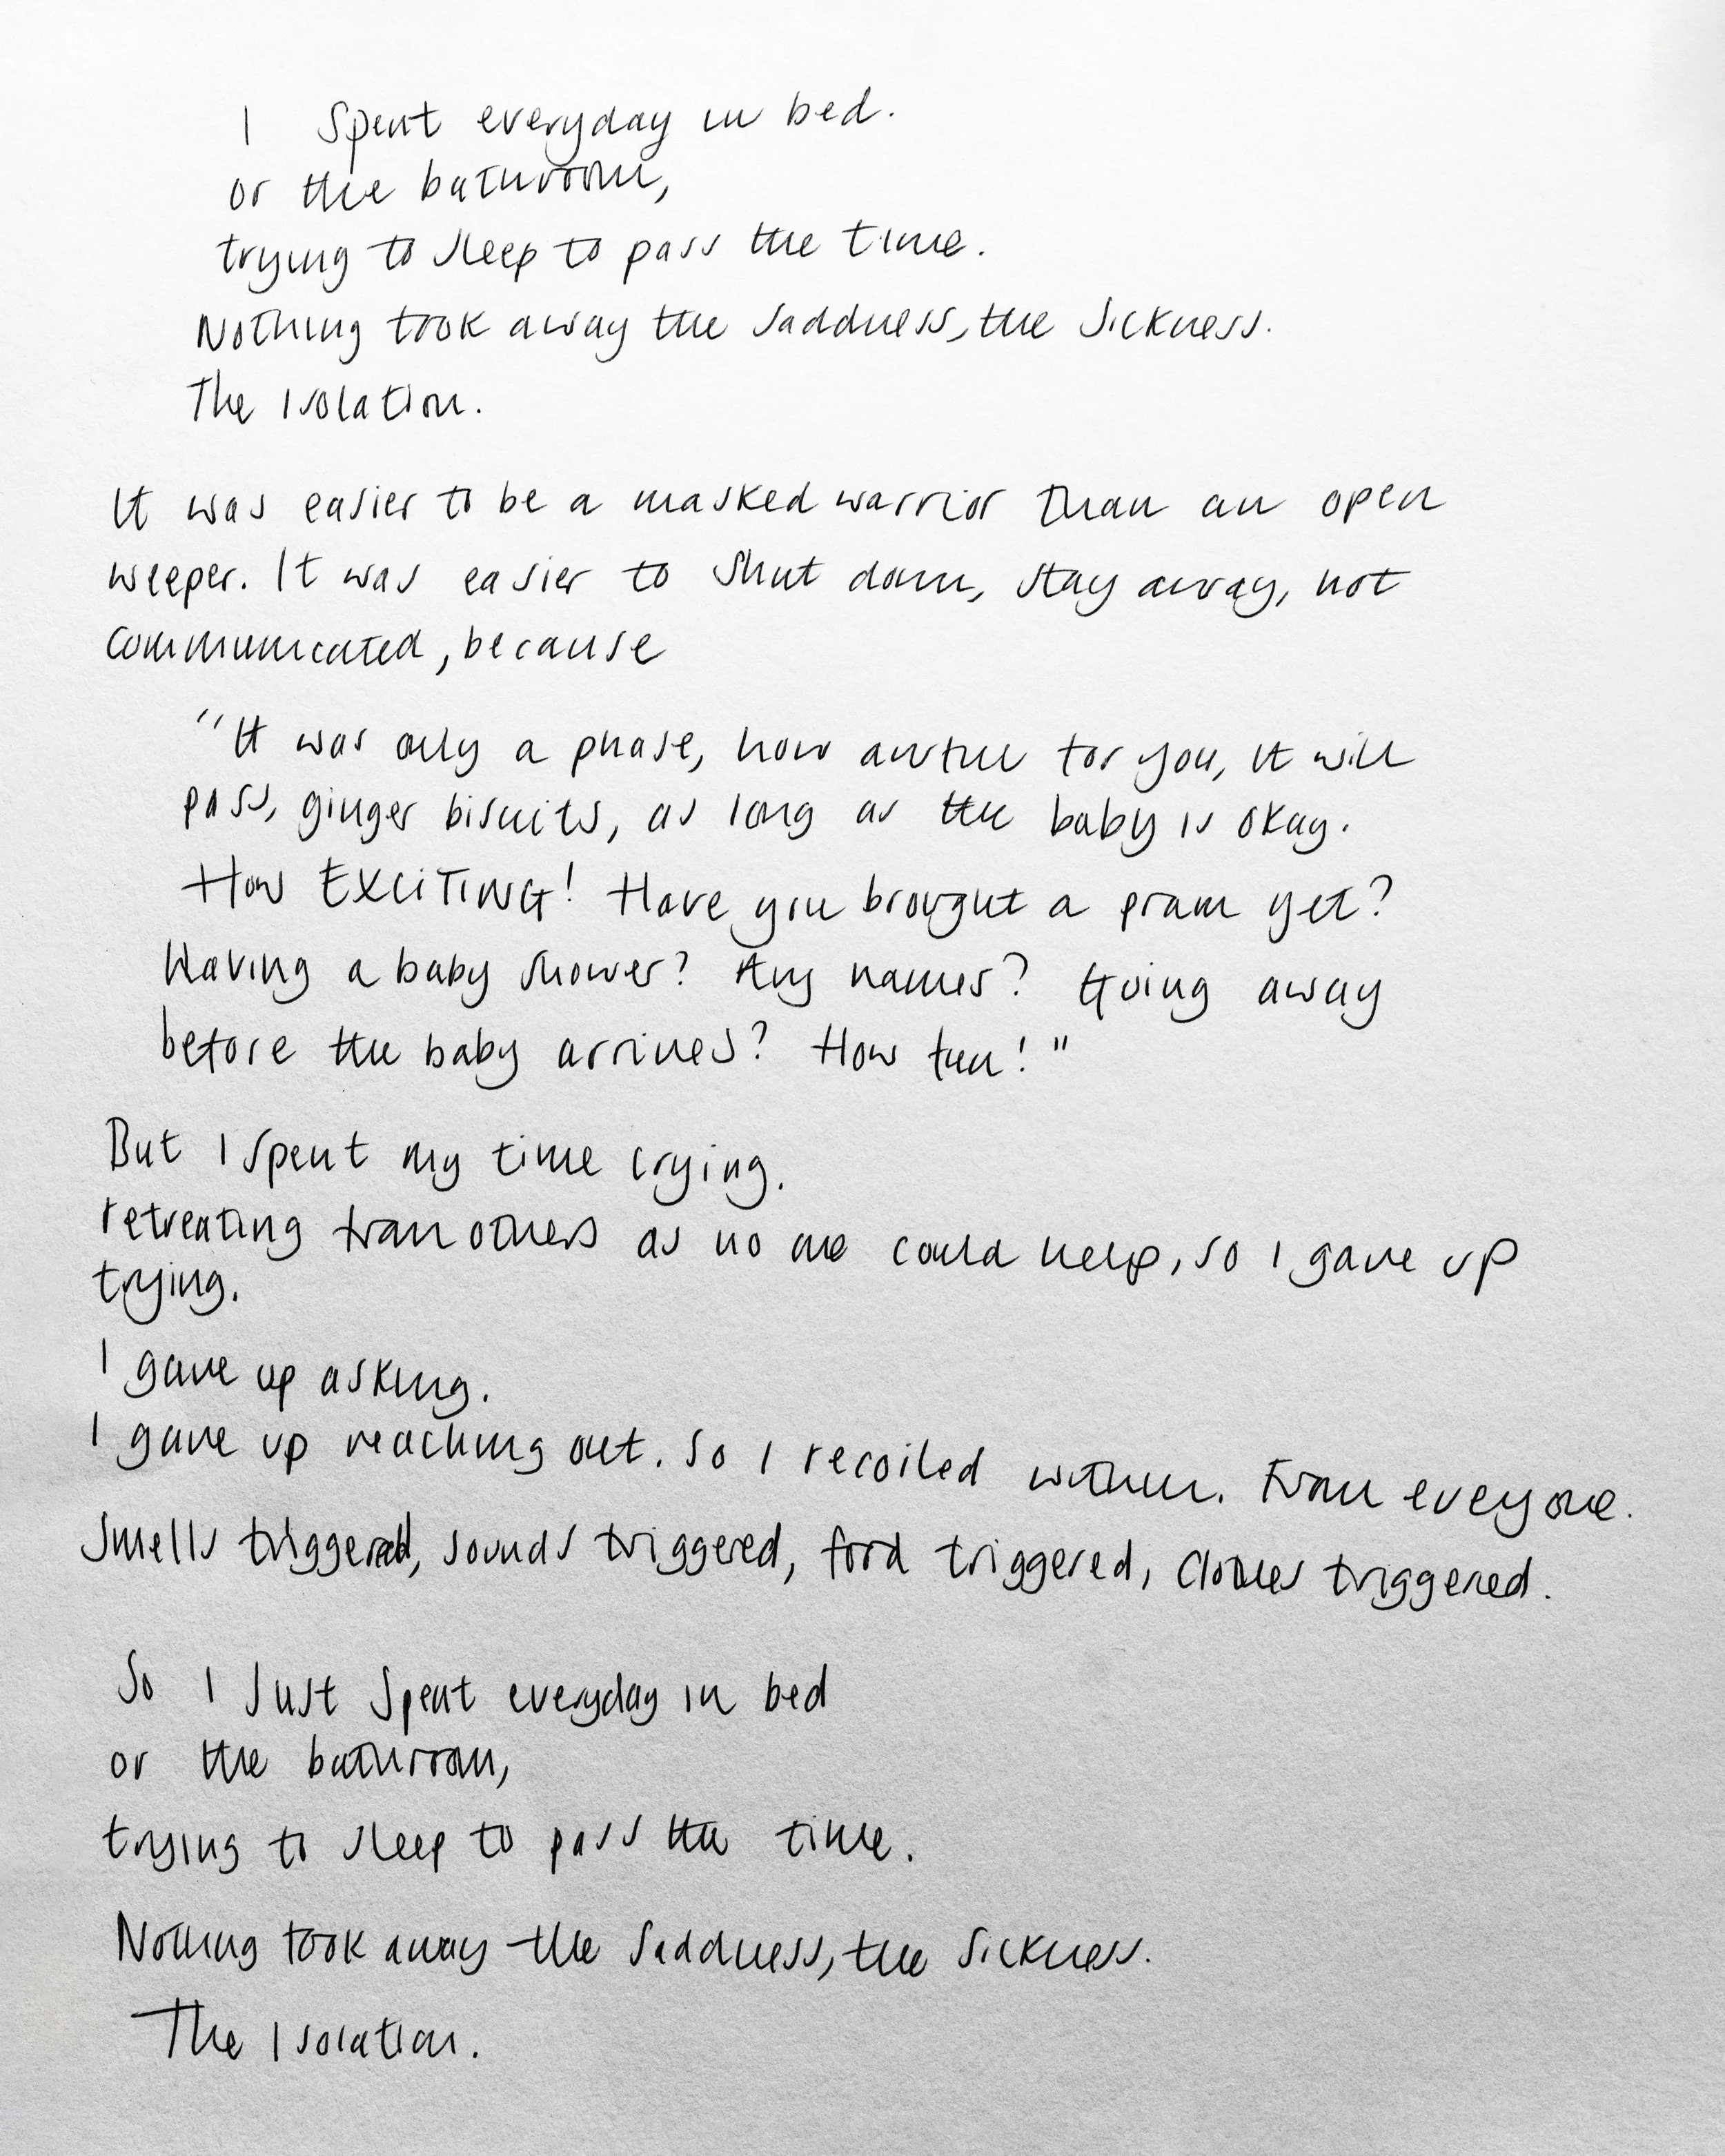 I Spent everyday in bed.
or the bathroom,
trying to sleep to pass the time.
Nothing took away the saddness, the sickness.
The Isolation.
It was easier to be a masked warrior than an open
weeper. It was easier to shut down, stay away, not
communicated, because
"It was only a phase, how awful for you, it will
pass, ginger biscuits, as long as the baby is okay.
How EXCITING! Have you brought a pram yet?
Having a baby shower? Any names? Going away
before the baby arrives? How fun!"
But I spent my time crying.
retreating from others as no one could help, so I gave up
trying.
I gave up asking.
I gave up reaching out. So I recoiled within. From eveyone.
Smells triggered, sounds triggered, food triggered, clothes triggered.
So I Just spent everyday in bed
or the bathroom,
trying to sleep to pass the time.
Nothing took away the saddness, the sickness.
The Isolation.